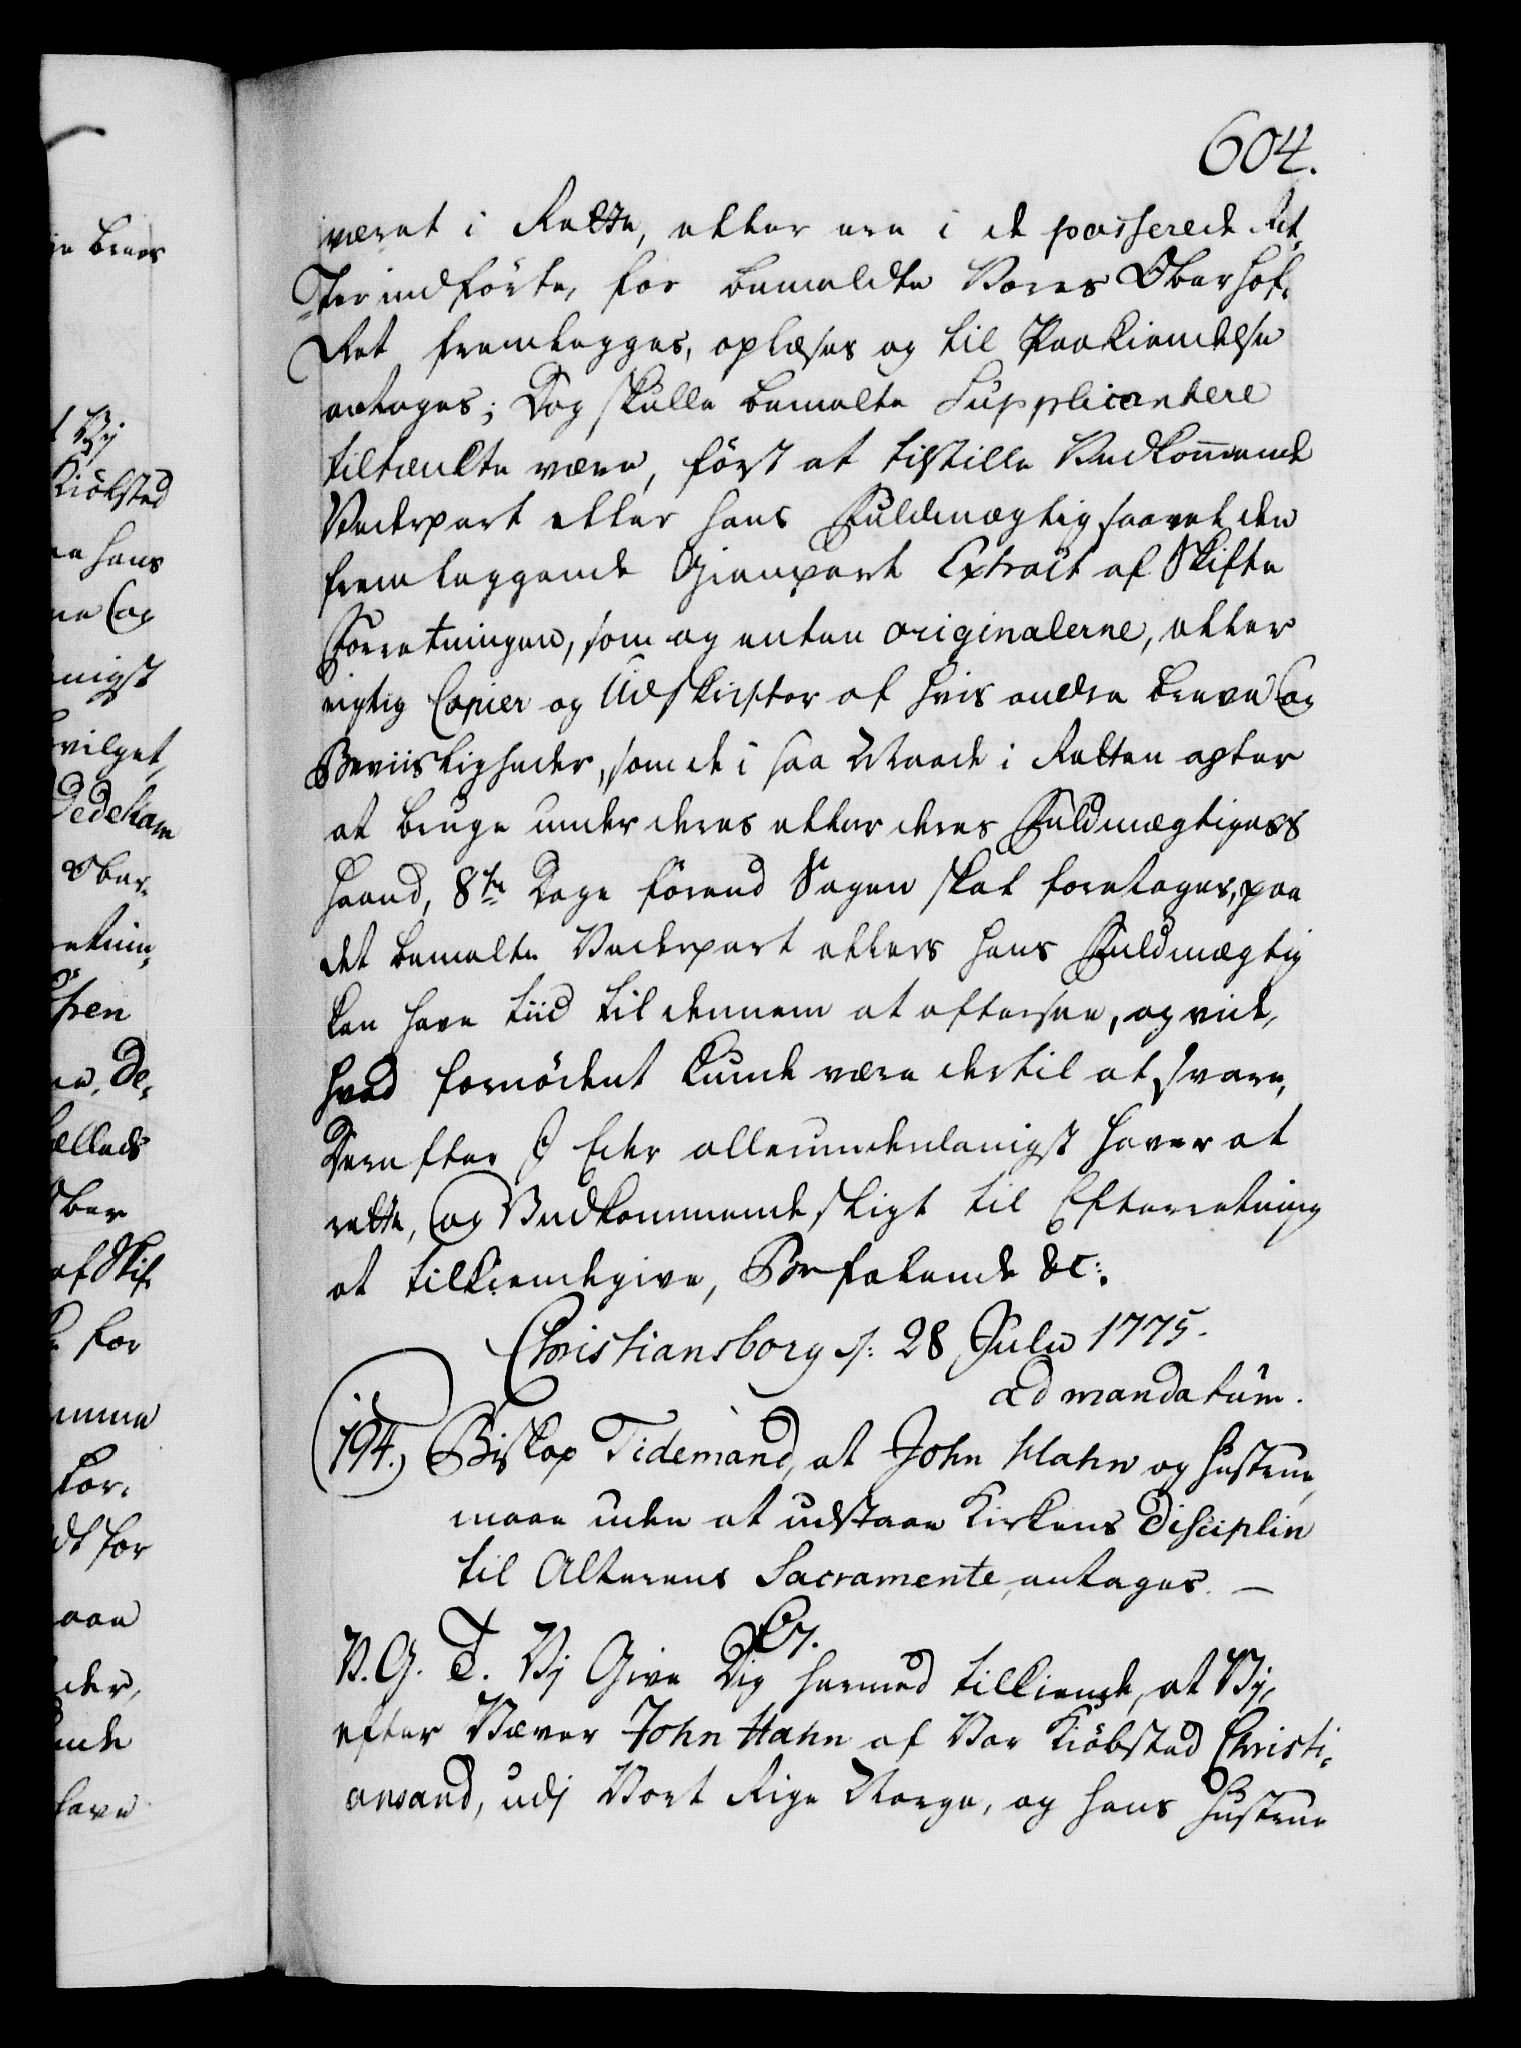 604.
været i Rette, eller ere i de passerede Act,
ter indførte, for bemeldte Vores Oberhof-
Ret fremlegges, oplæses og til Paakiendelse
antages; Dog skulle bemelte Supplicantere
tiltænkte være, först at tilstille Vedkom̄ende
Vederpart eller hans Fuldmægtig saavel den
fremleggende Gienpart Extract af Skifte
Forretningen, som og enten originalerne, eller
rigtig Copier og Udskrifter af hvis andre breve og
Beviisligheder, som de i saa Maade i Retten agter
at bruge under deres eller deres Fuldmægtiges
Haand, 8te Dage førend Sagen skal foretages, paa
det bemelte Vederpart ellers hans Fuldmægtig
kan have tiid til dennem at eftersee, og vide,
hvad fornødent kunde være dertil at svare,
Derefter I Eder allerunderdanigst haver at
rette, og Vedkommende sligt til Efterretning
at tilkiendegive, Befalende &c:.
Christiansborg S: 28 Julii 1775.
ad mandatum.
194.) Biskop Tidemand, at John Hahn og Hustrue,
maae uden at udstaae Kirkens Disciplin
til Alterens Sacramente, antages. —
C7.
V. G. T. Vj Give Dig hermed tilkiende, at Vj,
efter Væver John Hahn af Vor Kiöbsted Christi-
ansand, udj Vort Rige Norge, og hans Hustrue